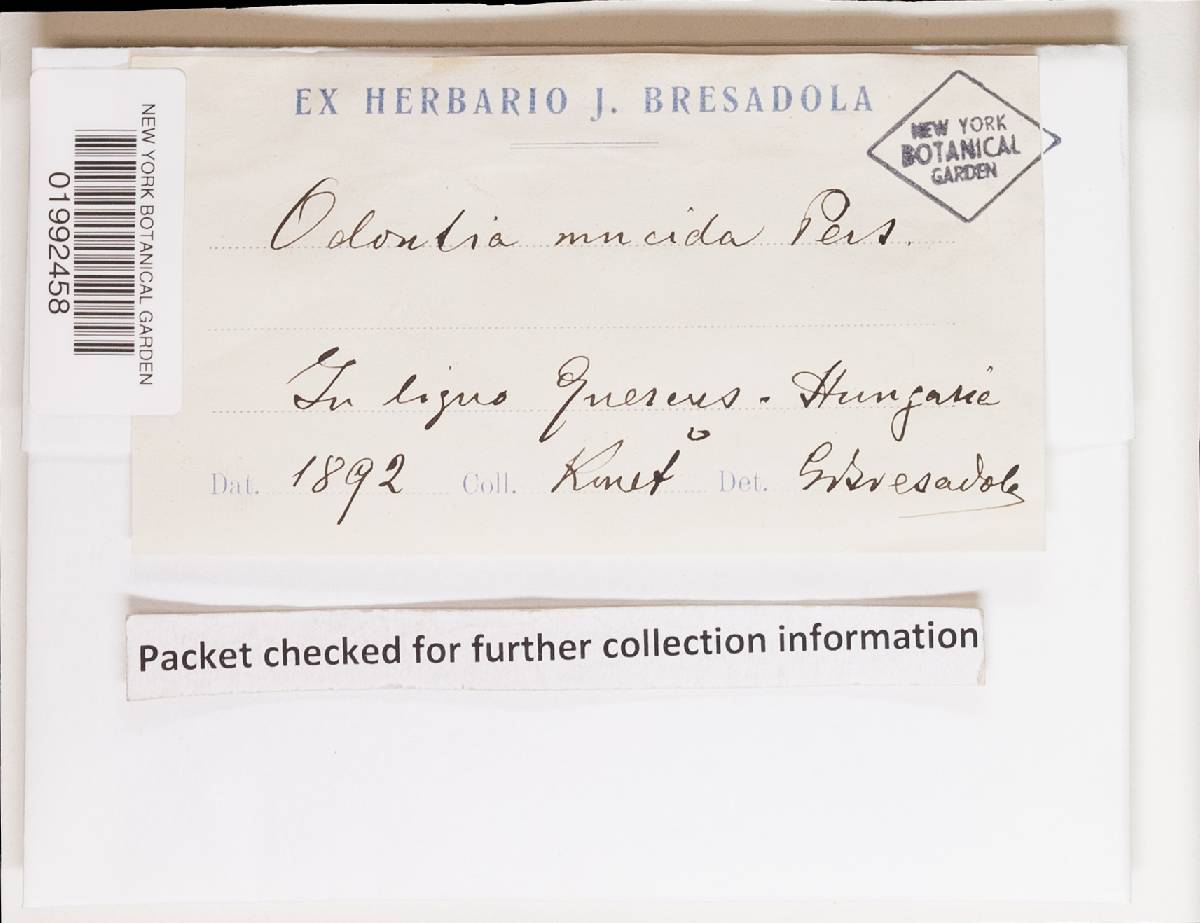 EX HERBARIO J. BRESADOLA
NEW YORK
BOTANICAL
GARDEN
NEW YORK BOTANICAL GARDEN
01992458
Odontia mucida Pers.
In ligno Quercus - Hungaria
Dat. 1892 Coll. Kmet Det. GBresadola
Packet checked for further collection information